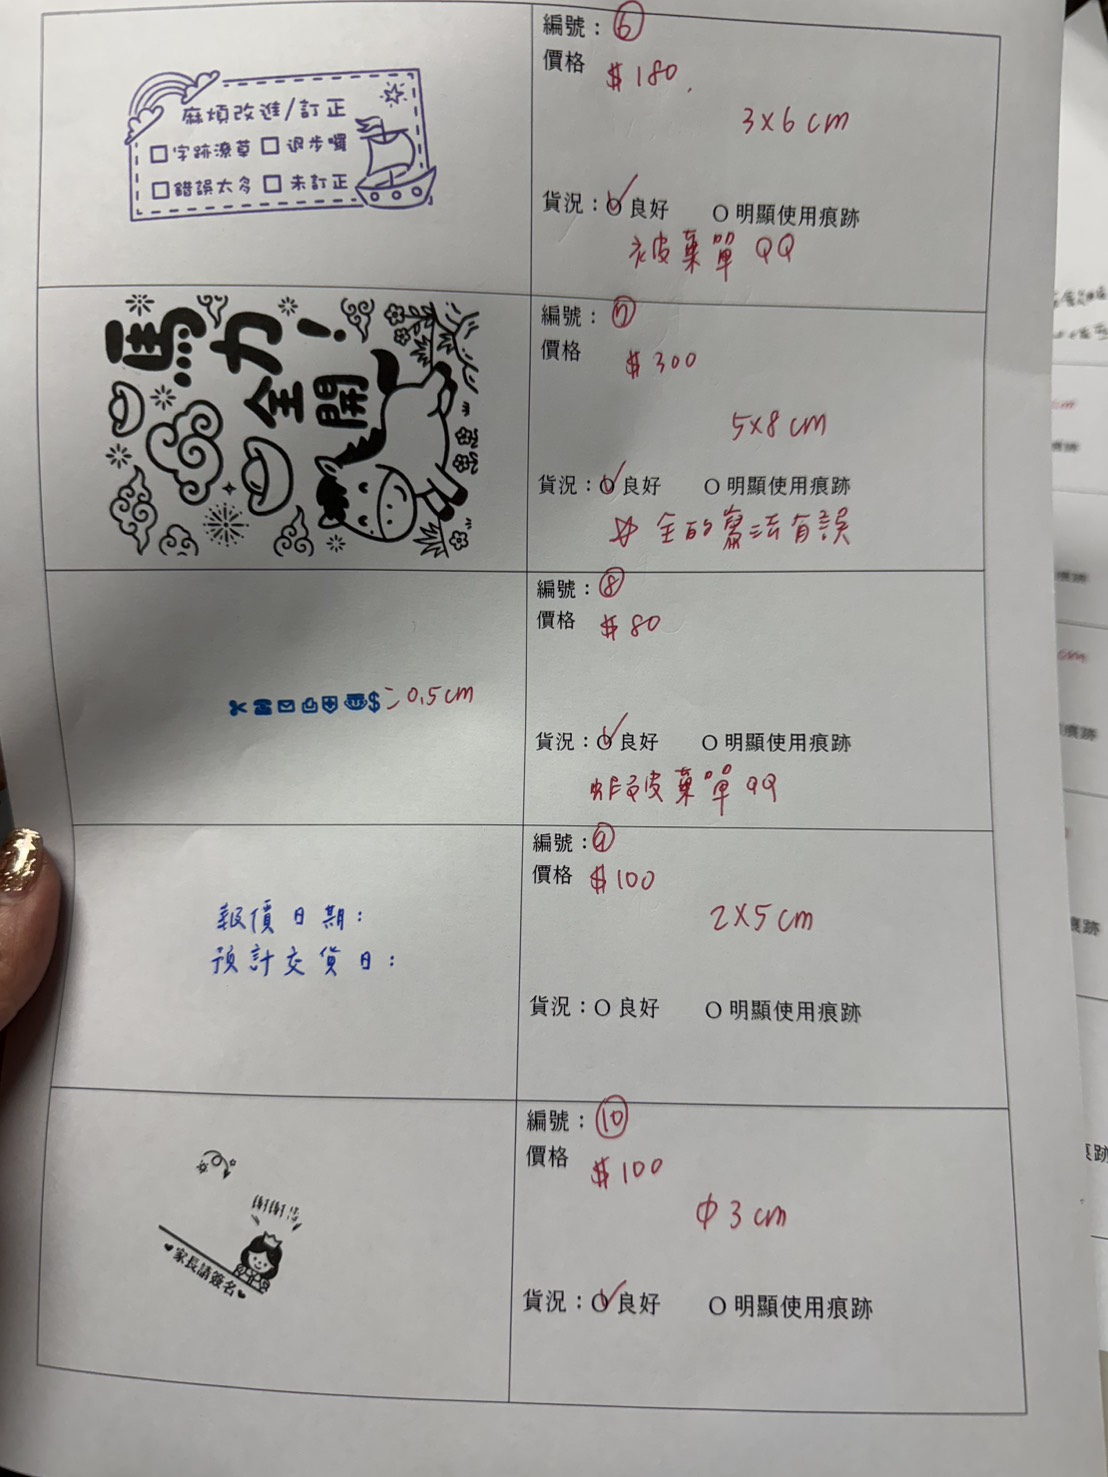 麻煩改進/訂正
□字跡潦草 □退步囉
□錯誤太多 □未訂正
編號：⑥
價格 $180.
3×6cm
貨況：○良好 ○明顯使用痕跡
被棄單QQ
馬力！
全開
編號：⑦
價格 $300
5×8cm
貨況：○良好 ○明顯使用痕跡
全的寫法有誤
$ 0.5cm
編號：⑧
價格 $80
貨況：○良好 ○明顯使用痕跡
被棄單QQ
報價日期：
預計交貨日：
編號：⑨
價格 $100
2×5cm
貨況：○良好 ○明顯使用痕跡
謝謝您
♥家長請簽名♥
編號：⑩
價格 $100
φ3cm
貨況：○良好 ○明顯使用痕跡